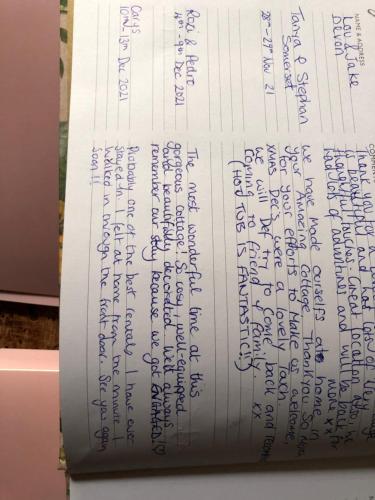 NAME & ADDRESS
Lou & Jake
Devon
COMM
Thank you for a
beautiful and what lots of little
thoughtful touches. Great location also, we
had lots of adventures and will be back for
more xx
Tanya & Stephan
Somerset
28th - 29th Nov 21
We have made ourselfs at home in
your Amazing cottage. Thank you so much
for your efforts to make us welcome,
xmas Dec's were a lovely taxh
we will def try to come back and
coming to friend & family. xx
(HOT TUB IS FANTASTIC!!)
Rozi & Pedro
9th Dec 2021
The most wonderful time at this
gorgeous cottage! So cosy, well equipped
and beautifully decorated. Will always
remember our stay because we got ENGAGED!♡
Carys
10th - 13th Dec 2021
Probably one of the best rentals I have ever
stayed in. I felt at home from the minute I
walked in through the front door. See you again
Soon!!